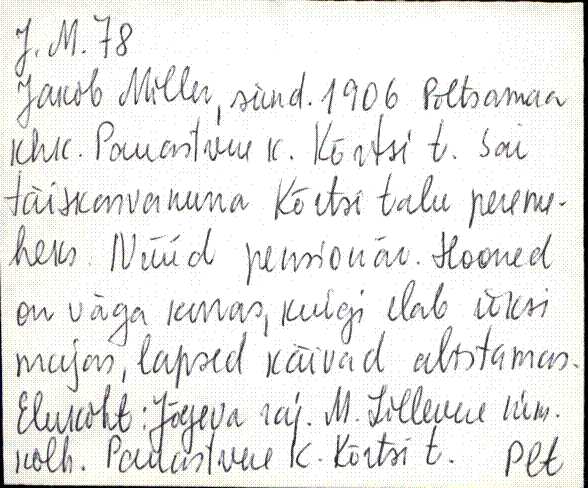 J. M. 78
Jakob Miller, sünd. 1906 Põltsamaa
khk. Pauastvere k. Kõrtsi t. Sai
täiskasvanuna Kõrtsi talu pereme-
heks. Nüüd pensionär. Hooned
on väga korras, kuigi elab üksi
majas, lapsed käivad abistamas.
Elukoht: Jõgeva raj. M. Lillevere nim.
kolh. Pauastvere k. Kõrtsi t. Plt